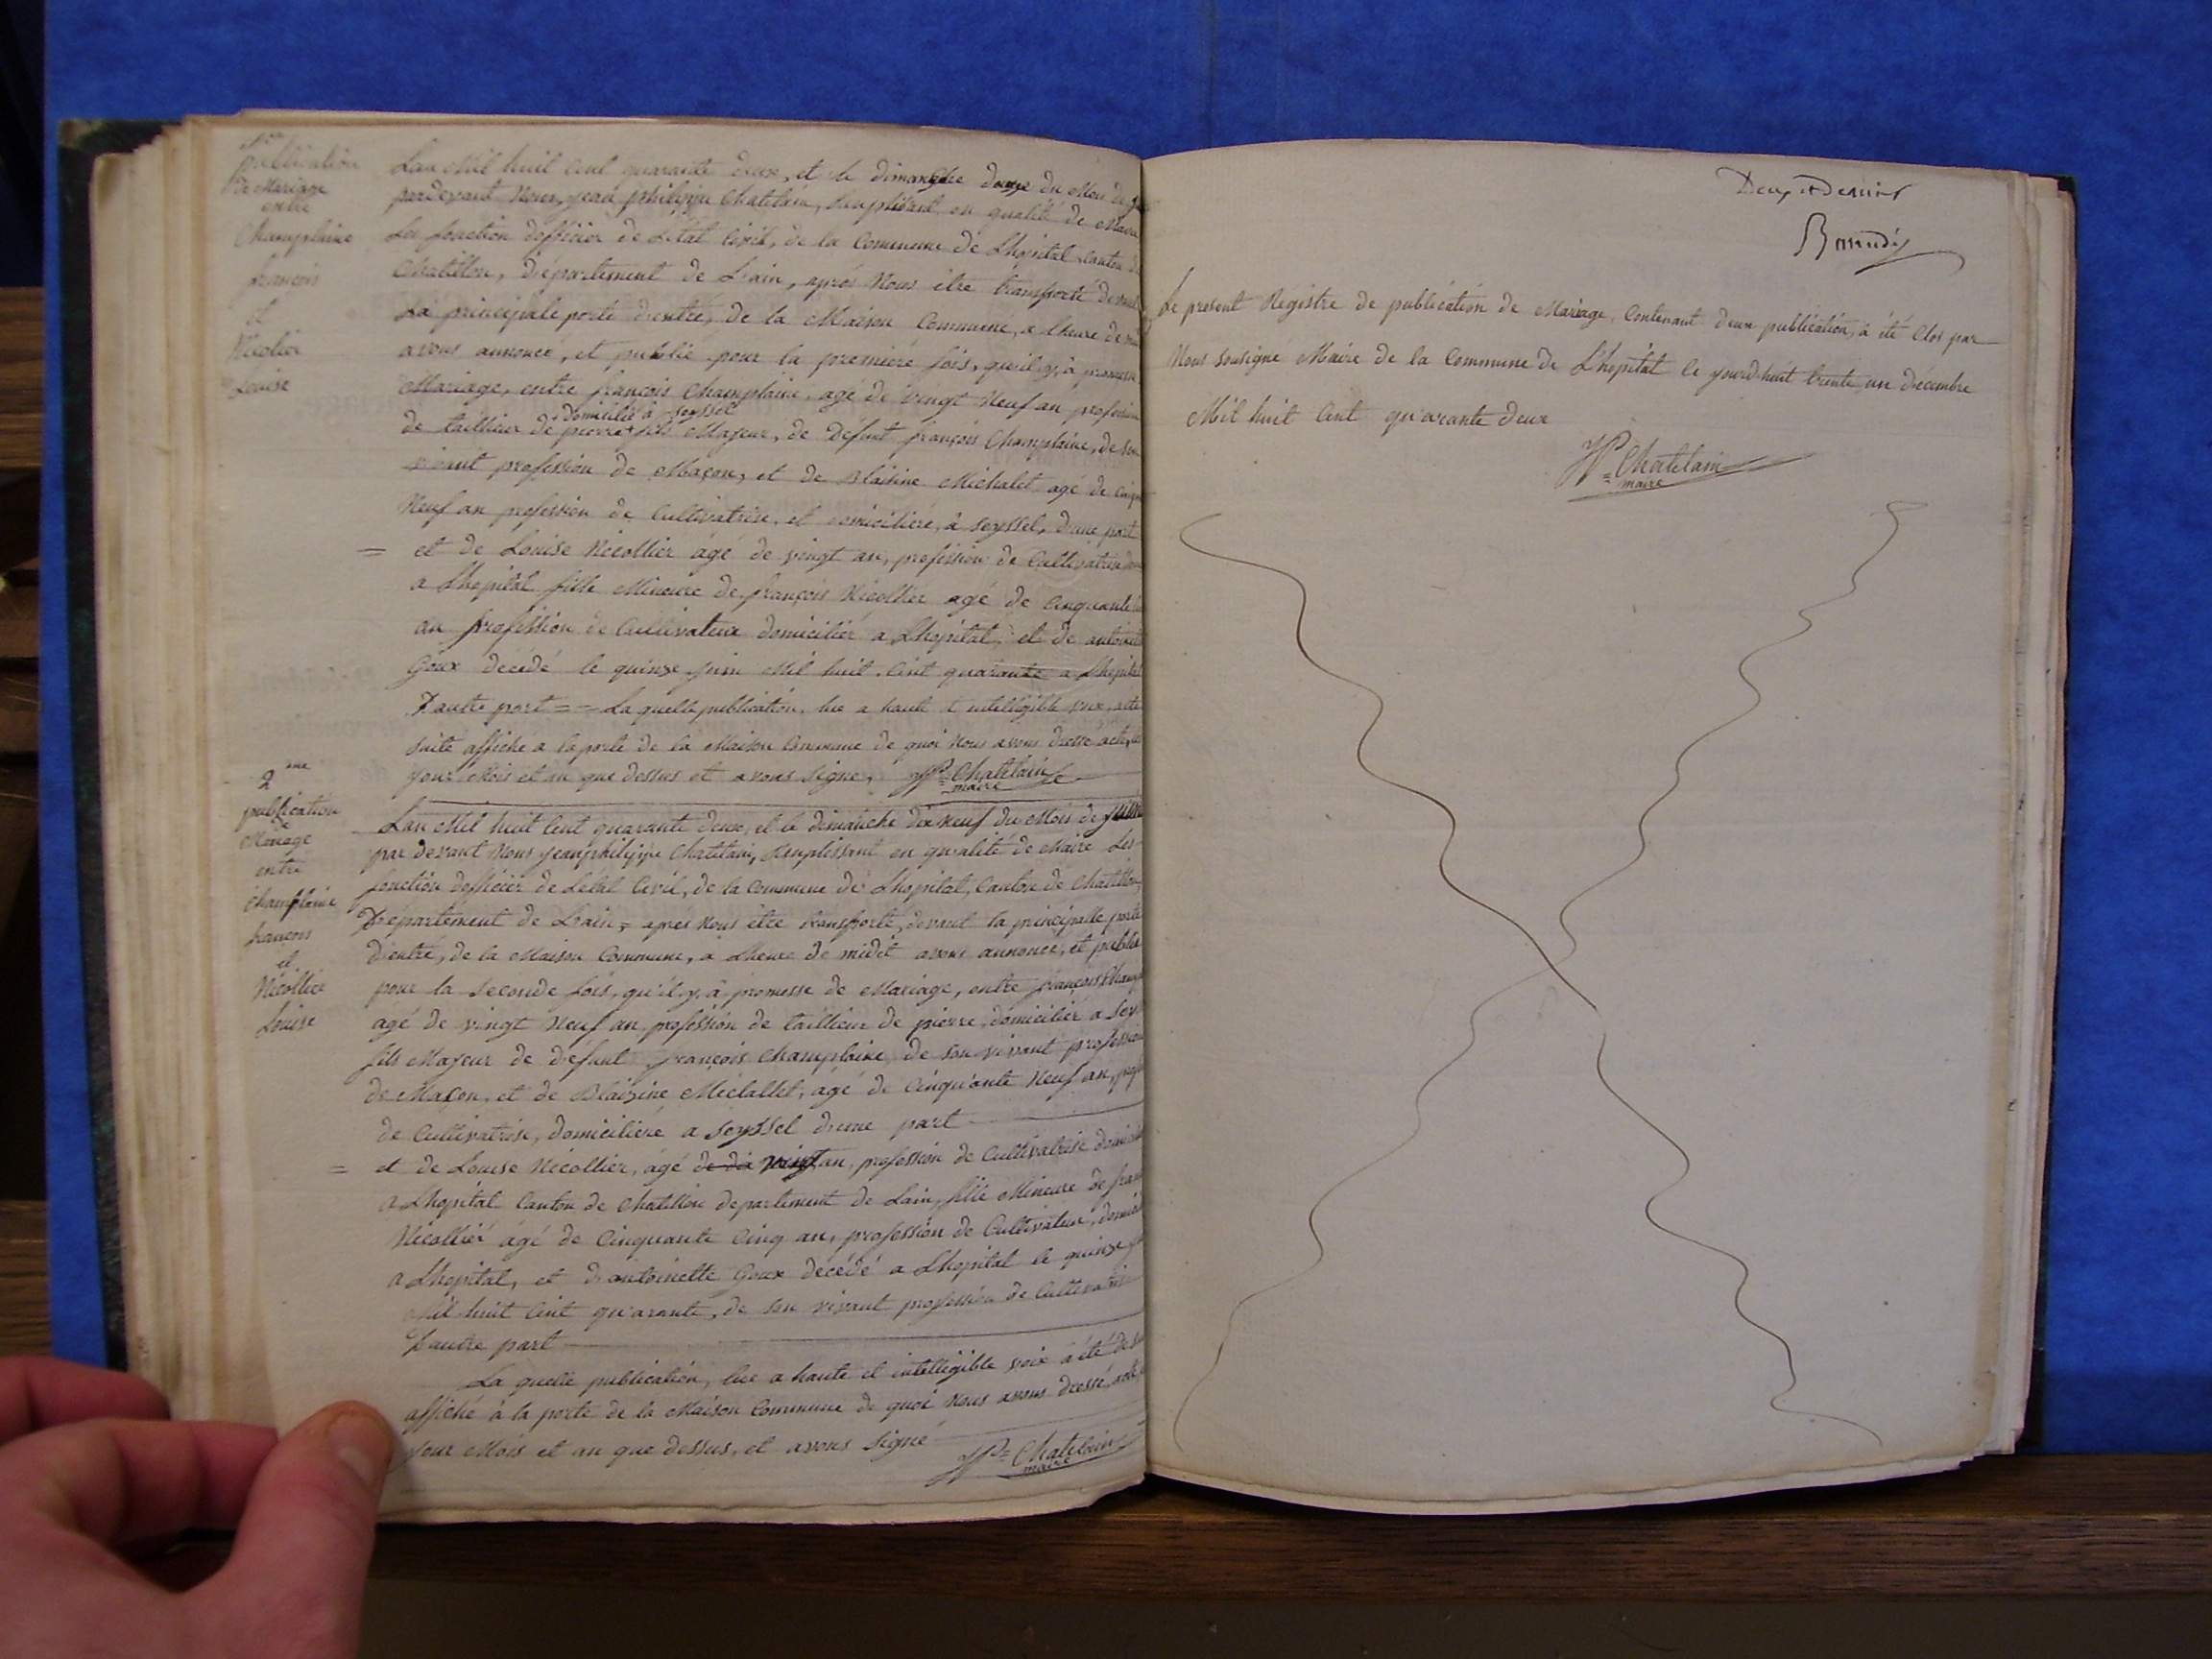 1ere
publication
de Mariage
entre
Champlaine
françois
et
Nicolier
Louise
Lan Mil huit Cent quarante deux, et le dimanche douze du Mois de
pardevant Nous, jean philippe Chatelain, Remplissant en qualité de Maire
Les fonction dofficier de Létat Civil, de la Commune de Lhopital, Canton de
Chatillon, Département de Lain, après Nous être transporté devant
La principale porte dentré, de la Maison Commune, a lheure de
avons annoncé, et publié pour la premiere fois, quil y à promesse
Mariage, entre françois Champlaine, agé de vingt Neuf an profession
Domicilié à Seyssel
de taillieur de pierre + fils Majeur, de Défunt françois Champlaine, de son
vivant profession de Maçon, et de Blaisine Michalet agé de
Neuf an profession de Cultivatrise, et domiciliere, à Seyssel, dune part
= et de Louise Nicollier âgé de vingt an, profession de Cultivatrise
a Lhopital fille Mineure de françois Nicollier agé de Cinquante
an profession de Cultivateur domicilier a Lhopital, et de
Goux décédé le quinze Juin Mil huit Cent quarante a Lhopital
D'autre part = = La quelle publication, lue a haute et intelligible voix,
suite affiché a la porte de la Maison Commune de quoi Nous avons dressé acte,
jour Mois et an que dessus et avons Signé, JP= Chatelain
maire
2eme
publication
de
Mariage
entre
Champlaine
françois
et
Nicollier
Louise
Lan Mil huit Cent quarante deux, et le dimanche dix neuf du Mois de Juin
par devant Nous jean philippe Chatelain, Remplissant en qualité de Maire Les
fonction dofficier de Létat Civil, de la Commune de Lhopital, Canton de Chatillon,
Département de Lain, apres Nous être transporté, devant la principalle porte
dentré, de la Maison Commune, a lheure de midit avons annoncé, et publié
pour la seconde fois, qu'il y à promesse de Mariage, entre françois
agé de vingt Neuf an, profession de taillieur de pierre, domicilier a
fils Majeur de défunt françois Champlaine de son vivant profession
de Maçon, et de Blaisine Michallet, agé de Cinquante Neuf an,
de Cultivatrise, domiciliere a Seyssel dune part
= et de Louise Nicollier, agé de dix vingt an, profession de Cultivatrise
a Lhopital Canton de Chatillon departement de Lain, fille Mineure de
Nicollier âgé de Cinquante Cinq an, profession de Cultivateur,
a Lhopital, et d'antoinette Goux décédé a Lhopital le quinze
Mil huit Cent quarante, de son vivant profession de Cultivatrise
D'autre part
La quelle publication, lue a haute et intelligible voix à été de
affiché à la porte de la Maison Commune de quoi Nous avons dressé,
jour Mois et an que dessus, et avons Signé
JP= Chatelain
maire
Deux et dernier
Le present Registre de publication de Mariage, Contenant deux publication, à été Clos par
Nous Sousigné Maire de la Commune de L'hopital le jourd'huit trente un décembre
Mil huit Cent quarante deux
JP= Chatelain
maire